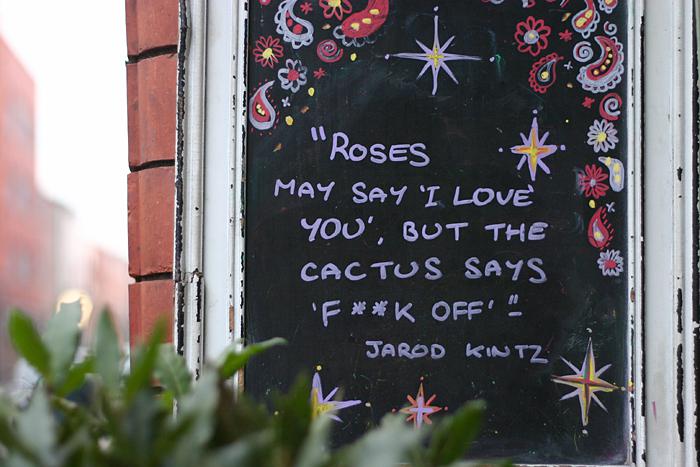 "ROSES
MAY SAY 'I LOVE
YOU', BUT THE
CACTUS SAYS
'F**K OFF'"
JAROD KINTZ